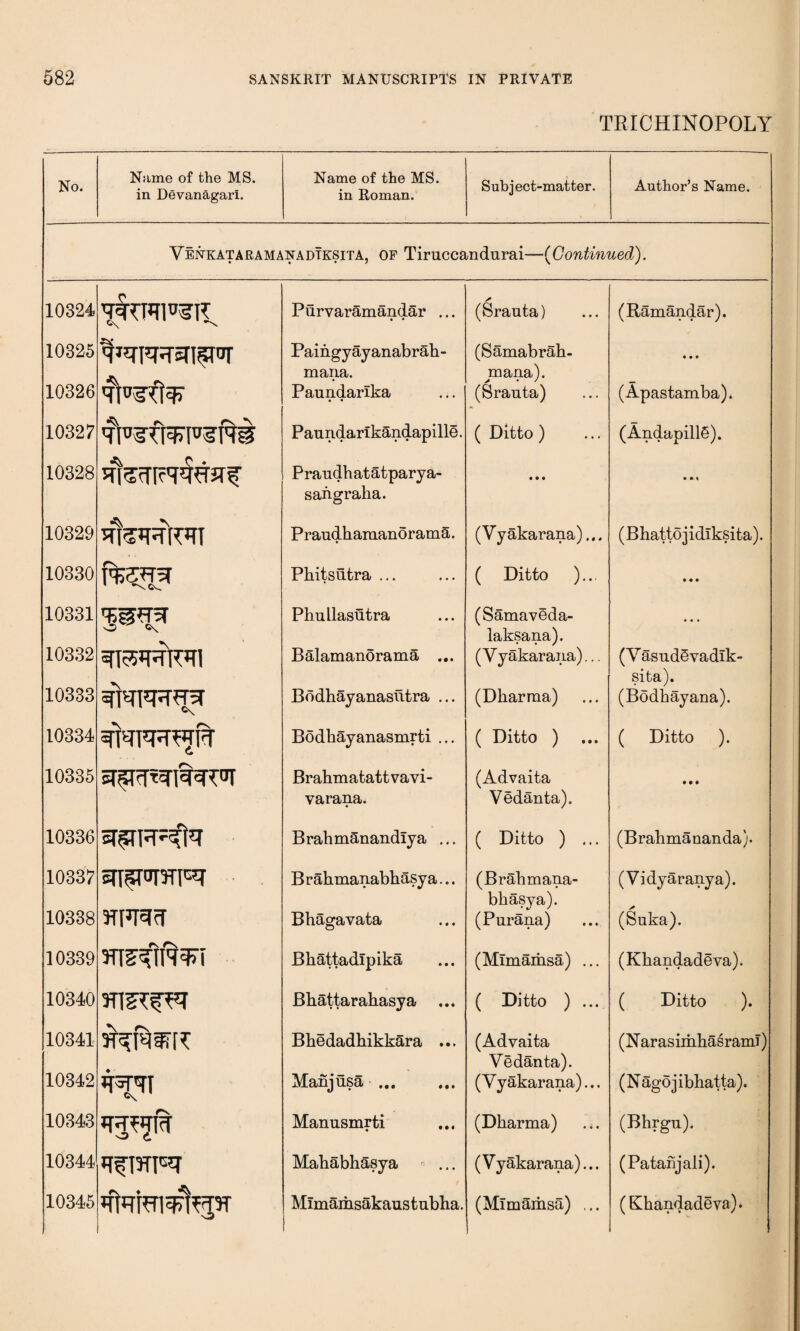 582 SANSKRIT MANUSCRIPTS IN PRIVATE
TRICHINOPOLY
No. Name of the MS. in Devanâgarî. Name of the MS. in Roman. Subject-matter. Author's Name.
Veṅkaṭaramaṇadīkṣita, of Tiruccandurai—(Continued).
10324 पूर्वरामाण्डार् Pūrvarāmāṇḍār ... (Śrauta) ... (Rāmāṇḍār).
10325 पैङ्ग्यायनब्राह्मण Paiṅgyāyanabrāh- (Sāmabrāh- ...
maṇa. maṇa).
10326 पौण्डरीक Pauṇḍarīka ... (Śrauta) ... (Āpastamba).
10327 पौण्डरीकाण्डपिल्लै Pauṇḍarīkāṇḍapillē. ( Ditto ) ... (Āṇḍapillē).
10328 प्रौढतात्पर्यसङ्ग्रह Prauḍhatātparya- ... ...
saṅgraha.
10329 प्रौढमनोरमा Prauḍhamanōramā. (Vyākaraṇa)... (Bhaṭṭōjidīkṣita).
10330 फिट्सूत्र Phiṭsūtra ... ... ( Ditto )... ...
10331 फुल्लसूत्र Phullasūtra ... (Sāmavēda- ...
lakṣaṇa).
10332 बालमनोरमा Bālamanōramā ... (Vyākaraṇa)... (Vāsudēvadīk-
sita).
10333 बोधायनसूत्र Bōdhāyanasūtra ... (Dharma) ... (Bōdhāyana).
10334 बोधायनस्मृति Bōdhāyanasmṛti ... ( Ditto ) ... ( Ditto ).
10335 ब्रह्मतत्त्वविवरण Brahmatattvavi- (Advaita ...
varaṇa. Vēdānta).
10336 ब्रह्मानन्दीय Brahmānandīya ... ( Ditto ) ... (Brahmānanda).
10337 ब्राह्मणभाष्य Brāhmaṇabhāṣya... (Brāhmaṇa- (Vidyāraṇya).
bhāṣya).
10338 भागवत Bhāgavata ... (Purāṇa) ... (Śuka).
10339 भाट्टदीपिका Bhāṭṭadīpikā ... (Mīmāṁsā) ... (Khaṇḍadēva).
10340 भाट्टरहस्य Bhāṭṭarahasya ... ( Ditto ) ... ( Ditto ).
10341 भेदधिक्कार Bhēdadhikkāra ... (Advaita (Narasiṁhāśramī)
Vēdānta).
10342 मञ्जूषा Mañjuṣā ... ... (Vyākaraṇa)... (Nāgōjibhaṭṭa).
10343 मनुस्मृति Manusmṛti ... (Dharma) ... (Bhṛgu).
10344 महाभाष्य Mahābhāṣya ... (Vyākaraṇa)... (Patañjali).
10345 मीमांसाकौस्तुभ Mīmāṁsākaustubha. (Mīmāṁsā) ... (Khaṇḍadēva).